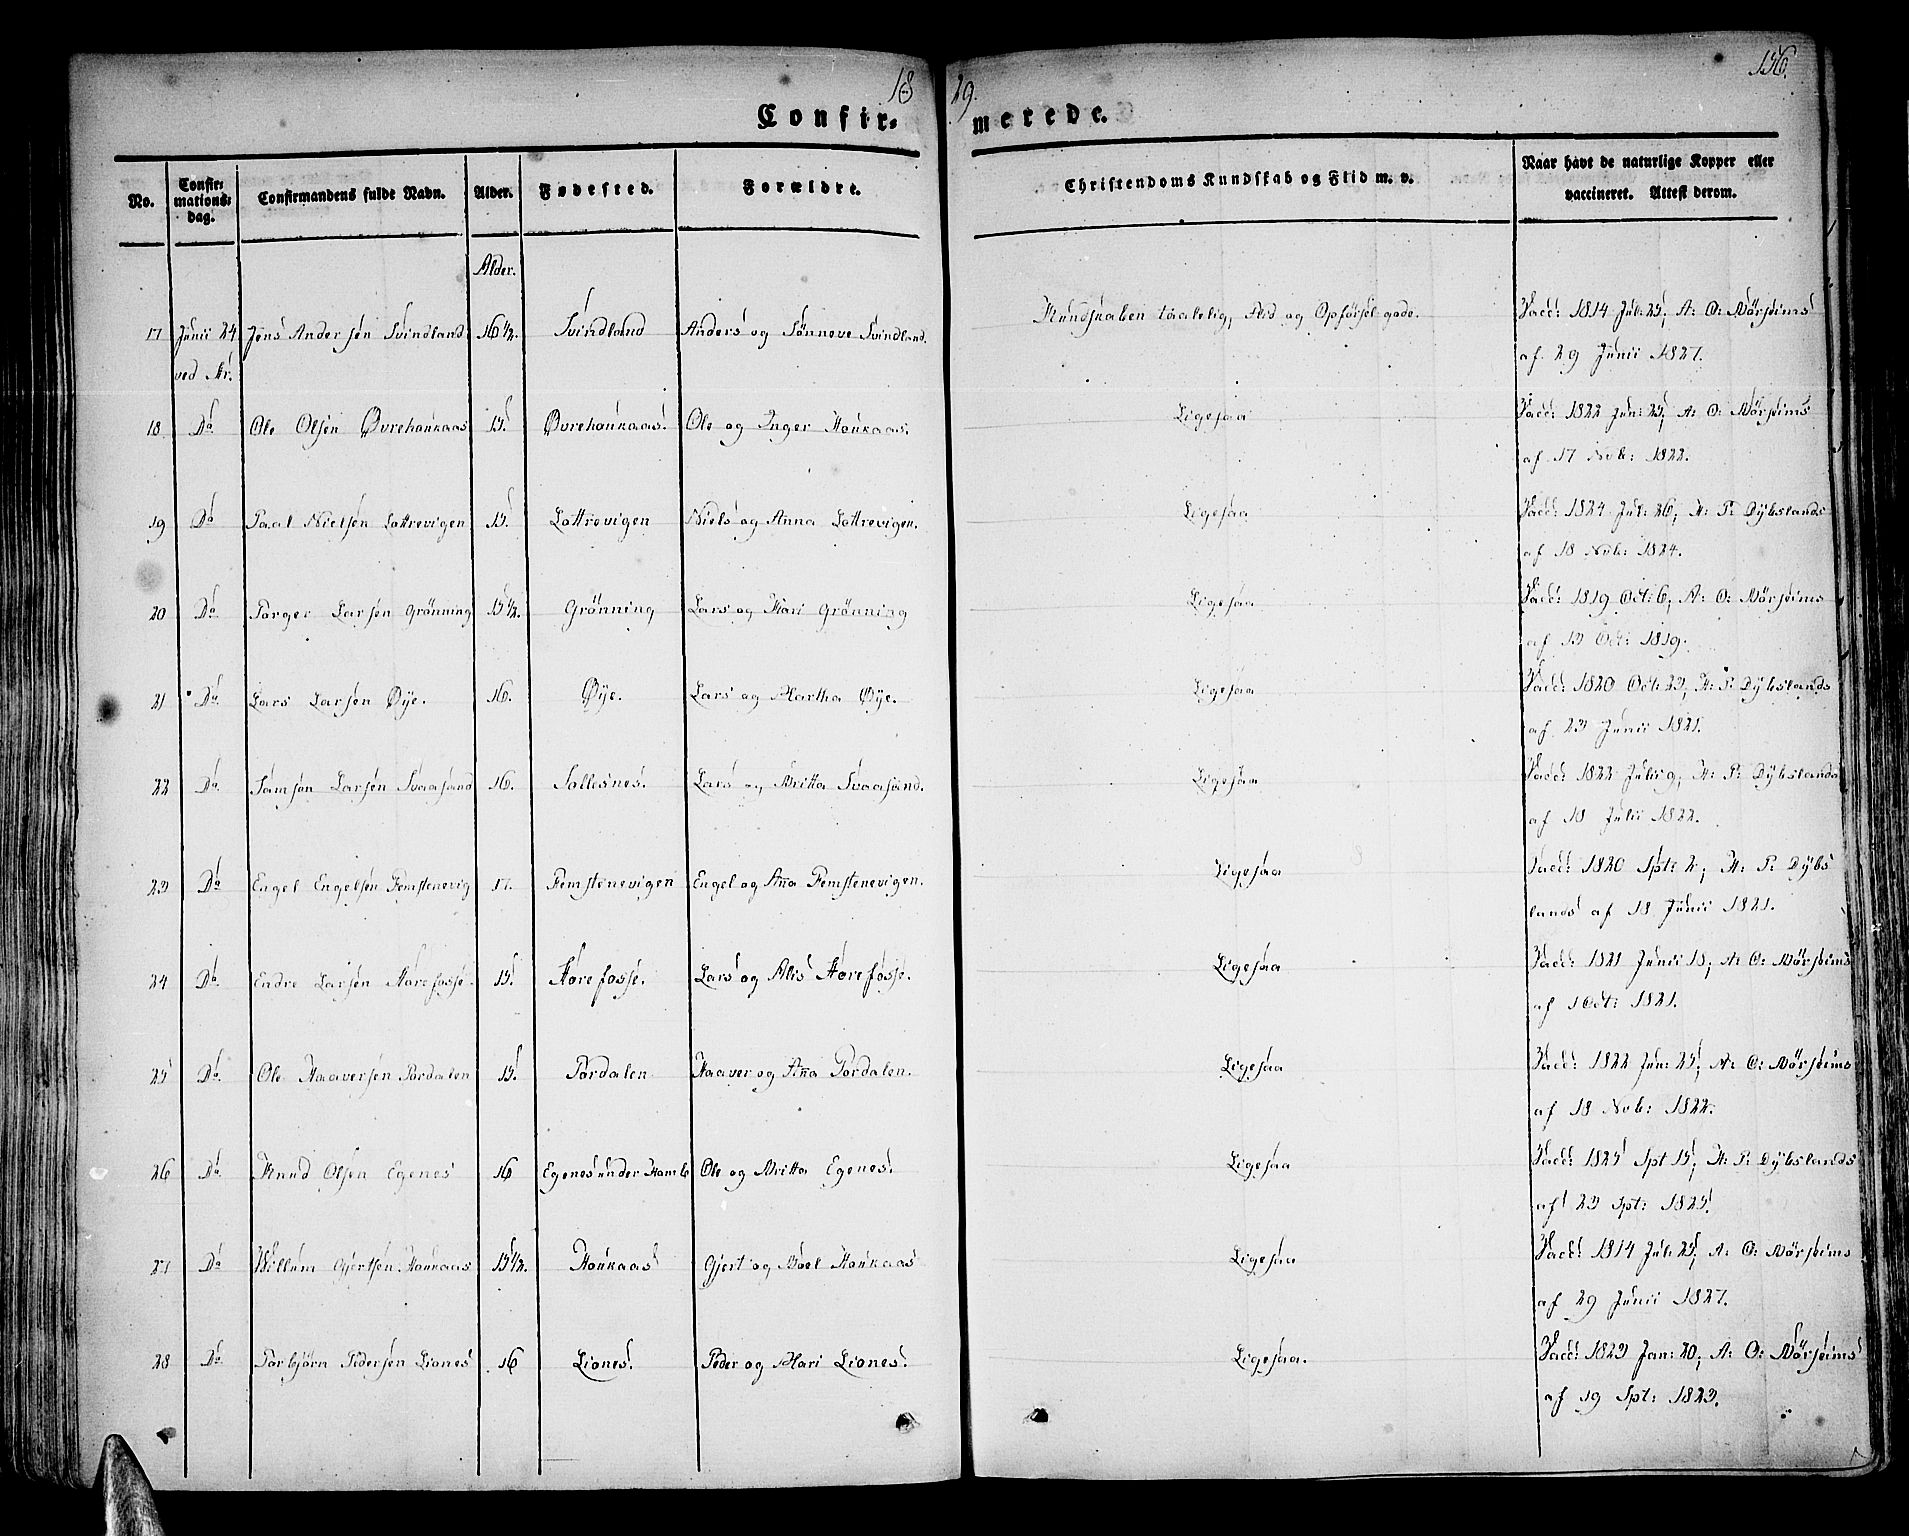 18 29. 156.
Confir- merede.
No. Confirmationsdag. Confirmandens fulde Navn. Alder. Fødested. Forældre. Christendoms Kundskab og Flid m. v. Naar havt de naturlige Kopper eller vaccineret. Attest derom.
Alder.
17 Junii 24 Jens Andersen Svindland 16 1/2. Svindland Anders og Sønneve Svindland. Kundskaben taalelig, Flid og Opførsel gode. Vacc: 1814 Jul: 25, A: O: Mörseims
ved Kr. af 29 Junii 1827.
18 Do Ole Olsen Øvrehoukaas 15. Øvrehoukaas. Ole og Inger Houkaas. Ligesaa Vacc: 1822 Jun: 25, A: O: Mörseims
af 17 Nvb: 1822.
19 Do Paal Nielsen Lottrevigen 15. Lottrevigen Niels og Anna Lottrevigen. Ligesaa Vacc: 1824 Jul: 26, H: P: Dybslands
af 18 Nvb: 1824.
20 Do Torger Larsen Grönning 15 1/2. Grönning Lars og Kari Grönning Ligesaa Vacc: 1819 Oct: 6, A: O: Mörseims
af 13 Oct: 1819.
21 Do Lars Larsen Øye. 16. Øye. Lars og Martha Øye. Ligesaa Vacc: 1820 Oct: 23, H: P: Dybslands
af 23 Junii 1821.
22 Do Samson Larsen Svaasand 16. Sollesnes. Lars og Britta Svaasand. Ligesaa Vacc: 1822 Julii 9, H: P: Dybslands
af 18 Julii 1822.
23 Do Engel Engelsen Femstenevig 17. Femstenevigen Engel og Ana Femstenevigen. Ligesaa Vacc: 1820 Spt: 2, H: P: Dybs
lands af 18 Junii 1821.
24 Do Endre Larsen Horefosse. 15. Horefosse. Lars og Alis Horefosse. Ligesaa Vacc: 1821 Junii 18, A: O: Mörseims
af 1 Oct: 1821.
25 Do Ole Haaversen Tordalen 15. Tordalen Haaver og Ana Tordalen. Ligesaa Vacc: 1822 Jun: 25, A: O: Mörseims
af 18 Nvb: 1822.
26 Do Knud Olsen Egenes 16 Egenes under Homb Ole og Britta Egenes. Ligesaa Vacc: 1825 Spt 15, H: P: Dybslands
af 23 Spt: 1825.
27 Do Willum Gjertsen Houkaas 15 1/2. Houkaas Gjert og Boel Houkaas Ligesaa Vacc: 1814 Jul: 25, A: O: Mörseims
af 29 Junii 1827.
28 Do Torbjörn Pedersen Liones 16 Liones. Peder og Mari Liones. Ligesaa. Vacc: 1823 Jan: 20, A: O: Mörseims
af 19 Spt: 1823.